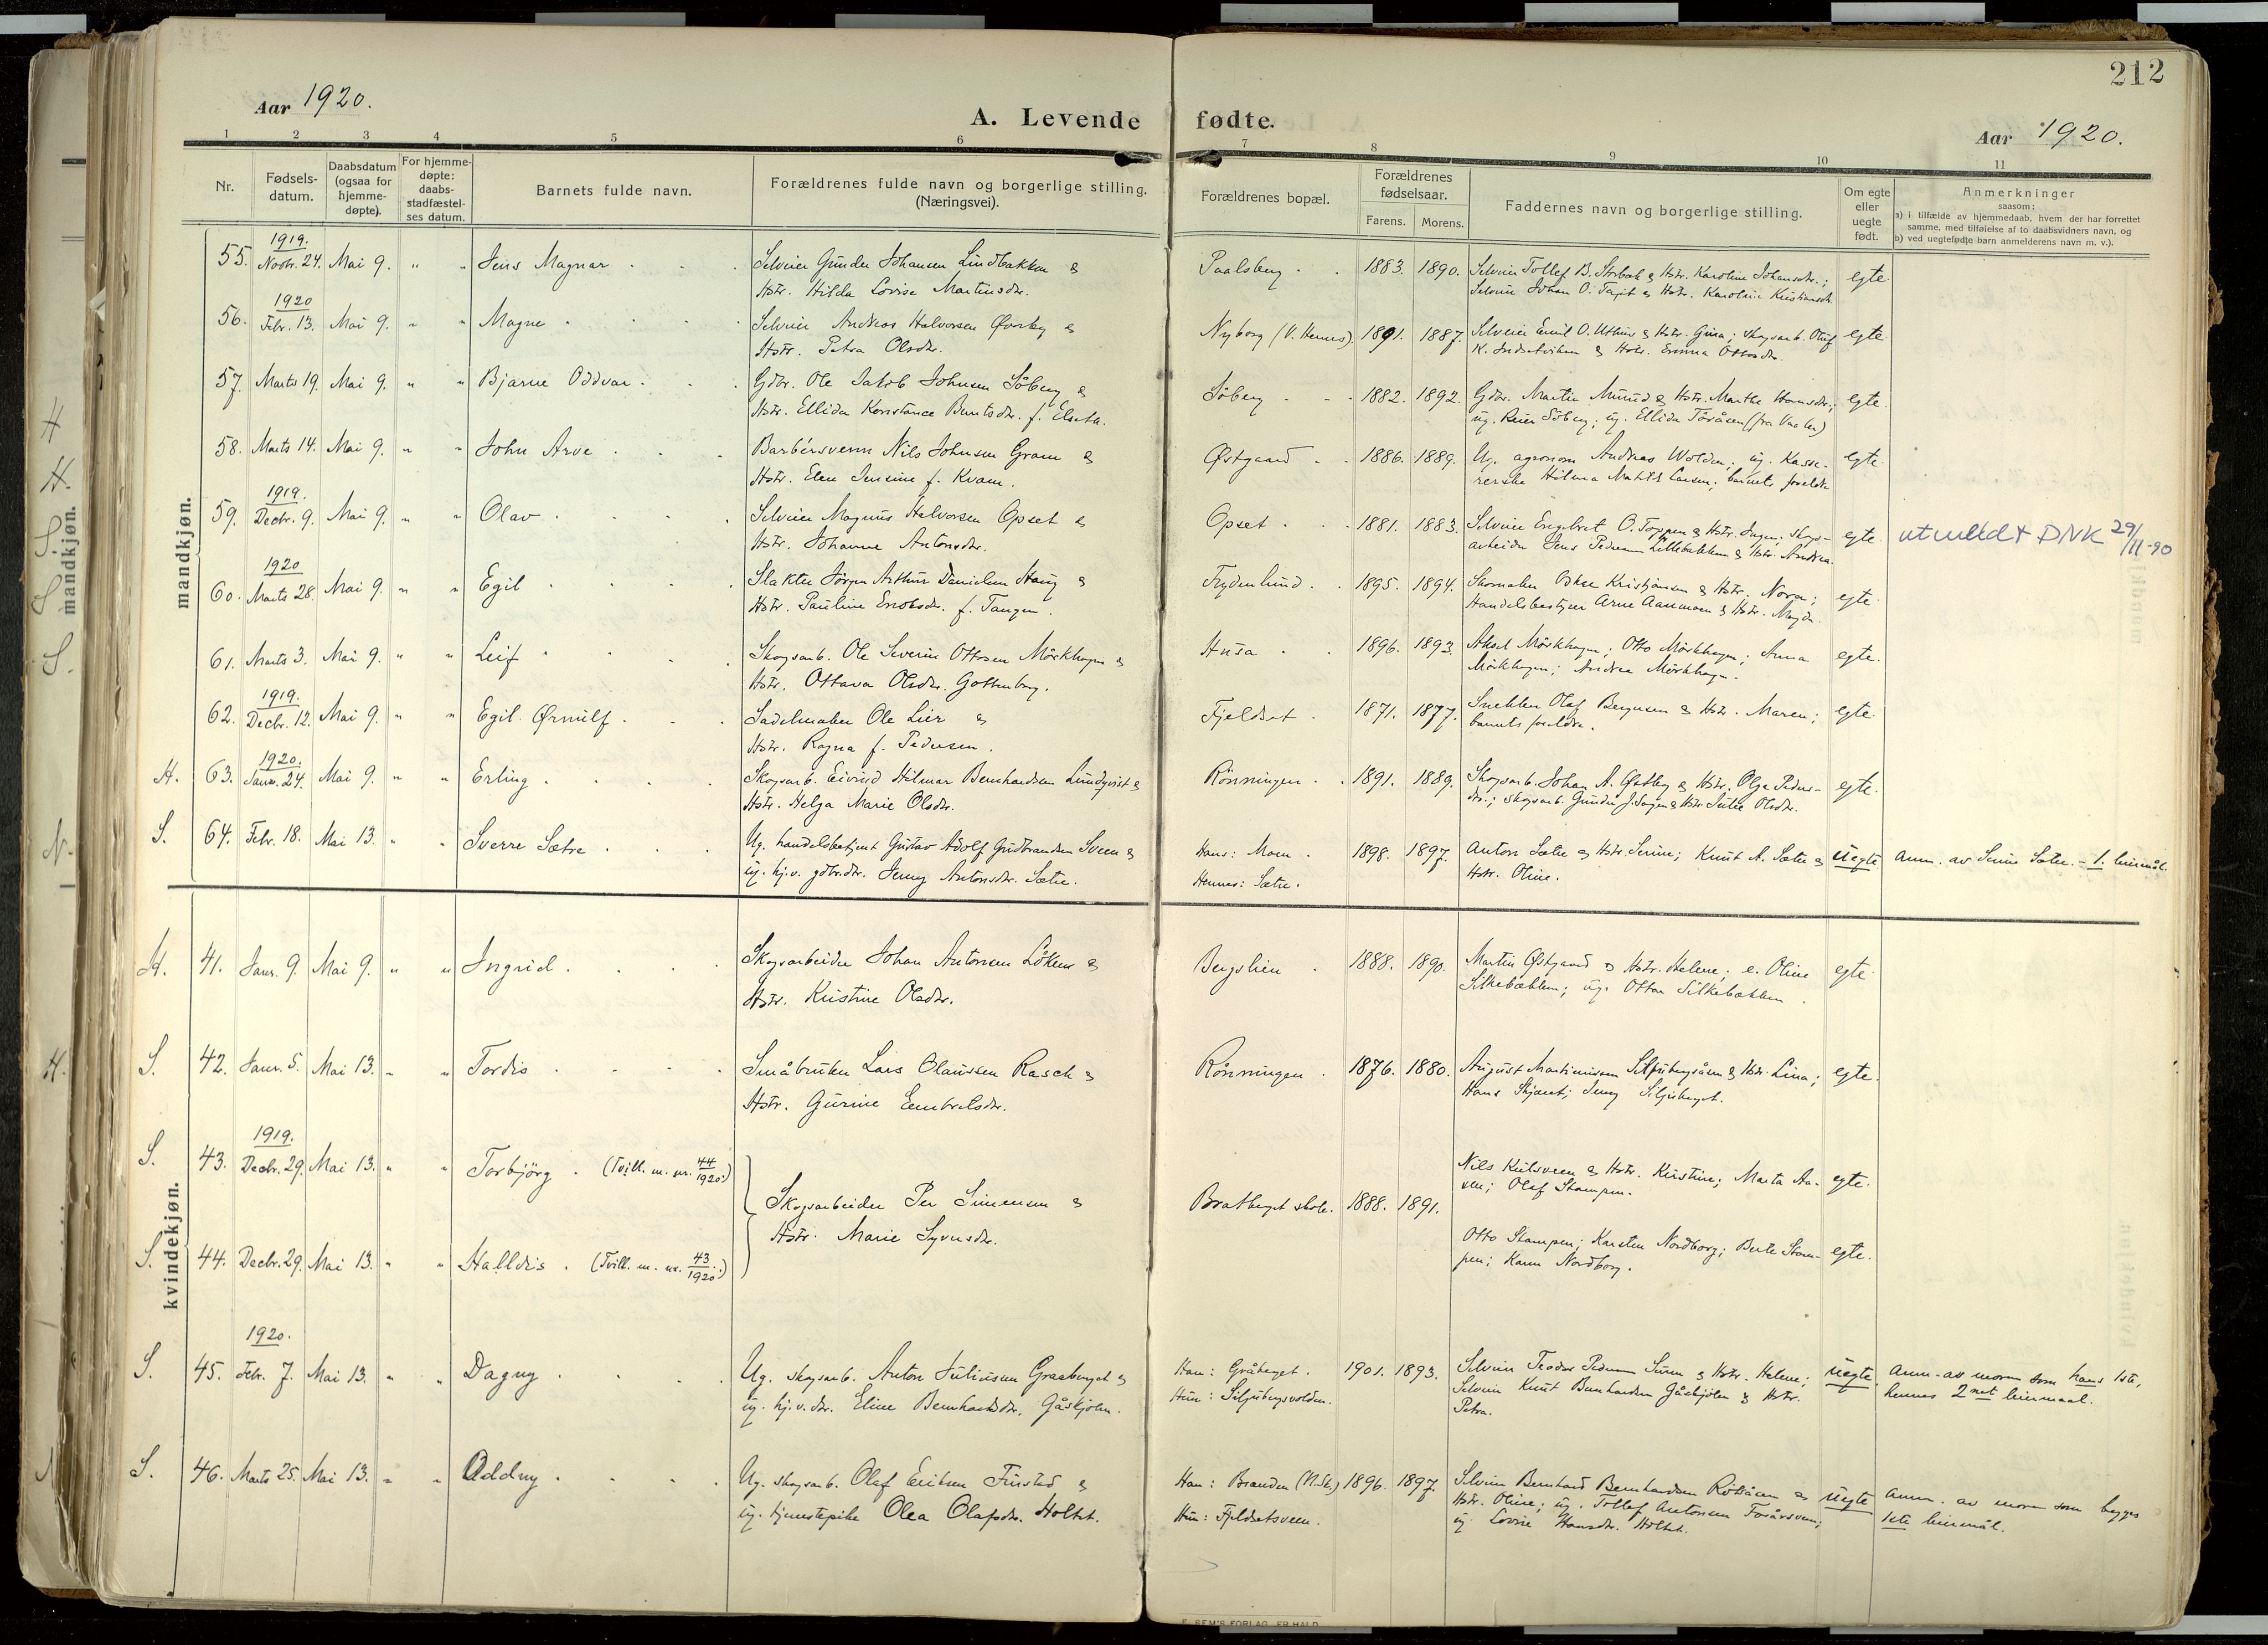 212
Aar 1920.
A. Levende fødte.
Aar 1920.
1 2 3 4 5 6 7 8 9 10 11
Nr.
Fødsels-
datum.
Daabsdatum
(ogsaa for
hjemme-
døpte).
For hjemme-
døpte:
daabs-
stadfæstel-
ses datum.
Barnets fulde navn.
Forældrenes fulde navn og borgerlige stilling.
(Næringsvei).
Forældrenes bopæl.
Forældrenes
fødselsaar.
Farens. Morens.
Faddernes navn og borgerlige stilling.
Om egte
eller
uegte
født.
Anmerkninger
saasom:
a) i tilfælde av hjemmedaab, hvem der har forrettet
samme, med tilføielse af to daabsvidners navn, og
b) ved uegtefødte barn anmelderens navn m. v.).
mandkjøn.
1919.
55. Novbr. 24. Mai 9. " " Jens Magnar . . . Selveier Gunder Johansen Lindbakken & Paalsberg . . 1883. 1890. Selveier Tollef B. Storbak & Hstr. Karoline Johansdtr.; egte.
Hstr. Hilda Lovise Martinsdtr. Selveier Johan O. & Hstr. Karoline Kristiansdtr.
1920
56. Febr. 13. Mai 9. " " Magne . . . Selveier Andreas Halvorsen Øvreby & Nyborg (V. Hernes). 1891. 1887. Selveier Emil O. & Hstr. Gina; skogsarb. Oluf egte
Hstr. Petra Olsdtr. K. & Hstr. Emma Ottosdtr.
57. Marts 19. Mai 9. " " Bjarne Oddvar . . . Gdbr. Ole Jakob Johnsen Söberg & Söberg . . . 1882. 1892. Gdbr. Martin & Hstr. Marthe Hansdtr.; egte.
Hstr. Ellida Konstance Berntsdtr. f. ug. Reier Söberg; ug. Ellida Toråsen (fra Vaaler)
58. Marts 14. Mai 9. " " John Arve . . . Barbérsvenn Nils Johnsen Gram & Østgaard . . 1886. 1889. Ug. agronom Andreas Wolden; ug. Kasse- egte.
Hstr. Elen Jensine f. Kvam. rerske Hilma Larsen; barnets foreldre
1919.
59. Decbr. 9. Mai 9. " " Olav . . . . Selveier Magnus Halvorsen Opset & Opset . . . 1881. 1883. Selveier Engebret O. & Hstr. Inga; skogs- egte. utmeldt DNK 29/11-90
Hstr. Johanne Antonsdtr. arbeider Jens Pedersen Lillebakken & Hstr. Andrea.
1920
60. Marts 28. Mai 9. " " Egil . . . . Slakter Jörgen Arthur Danielsen Haug & Frydenlund . . 1895. 1894. Skomaker Kristiansen & Hstr. Nora; egte.
Hstr. Pauline Enoksdtr. f. Tangen. Handelsbestyrer Arne Aanmoen & Hstr. Magda.
61. Marts 3. Mai 9. " " Leif . . . . Skogsarb. Ole Severin Ottosen Mörkhagen & Husa . . 1896. 1893. Aksel Mörkhagen; Otto Mörkhagen; Anna egte.
Hstr. Ottava Olsdtr. Gottenborg. Mörkhagen; Andrea Mörkhagen.
1919.
62. Decbr. 12. Mai 9. " " Egil Ørnulf . . . Sadelmaker Ole Lier & Fjeldset . 1871. 1877. Snekker Olaf Bergersen & Hstr. Maren; egte.
Hstr. Ragna f. Pedersen. barnets foreldre.
1920.
H. 63. Janr. 24. Mai 9. " " Erling . . . . Skogsarb. Eivind Hilmar Bernhardsen Lundqvist & Rönningen . . 1891. 1889. Skogsarb. Johan A. Østby & Hstr. Olga Peders- egte.
Hstr. Helga Marie Olsdtr. dtr.; skogsarb. Gunder J. & Hstr. Julie Olsdtr.
S. 64. Febr. 18. Mai 13. " " Sverre Sætre . . . Ug. handelsbetjent Gustav Adolf Gudbrandsen Sveen & Hans: Moen . 1898. 1897. Anton Sætre & Hstr. Serine; Knut A. Sætre & uegte. anm. av Serine Sætre. - 1. leiermål.
ug. hj.v. gdbr.dtr. Jenny Antonsdtr. Sætre. Hennes: Sætre. Hstr. Oline.
kvindekjøn.
H. 41. Janr. 9. Mai 9. " " Ingrid . . . . Skogsarbeider Johan Antonsen Löken & Bergslien . 1888. 1890. Martin Østgaard & Hstr. Helene; e. Oline egte.
Hstr. Kristine Olsdtr. Silkebækken; ug. Otto Silkebækken.
S. 42. Janr. 5. Mai 13. " " Tordis . . . . Småbruker Lars Olaussen Rasch & Rönningen . 1876. 1880. August Martinussen Siljubergsåsen & Hstr. Lina; egte.
Hstr. Gurine Embretsdtr. Hans Skjæret; Jenny Siljuberget.
1919.
S. 43. Decbr. 29. Mai 13. " " Torbjörg . (Tvill. m. nr. 44/1920.) Nils Kulsveen & Hstr. Kristine; Marta Aa- egte.
sen; Olaf Stampen.
Skogsarbeider Per Simensen & Bratberget skole. 1888. 1891.
Hstr. Marie Syversdtr.
S. 44. Decbr. 29. Mai 13. " " Halldis . (Tvill. m. nr. 43/1920.) Otto Stampen; Karsten Nordborg; Berte Stam- egte.
pen; Karen Nordborg.
1920.
S. 45. Febr. 7. Mai 13. " " Dagny . . . . Ug. skogsarb. Anton Juliussen Graaberget & Han: Gråberget. 1901. 1893. Selveier Teodor Pedersen & Hstr. Helene; uegte anm. av moren som hans 1ste,
ug. hj.v. dtr. Eline Bernhardsdtr. Gåskjölen. Hun: Siljubergsvolden. Selveier Knut Bernhardsen Gåskjölen & Hstr. hennes 2net leiermaal.
Petra.
S. 46. Marts 25. Mai 13. " " Oddny . . . . Ug. skogsarb. Olaf Eriksen Furstad & Han: Branden (N.Sk.) 1896. 1897. Selveier Bernhard Bernhardsen & uegte anm. av moren som begges
ug. tjenestepike Olea Olafsdtr. Holtet. Hun: Fjeldsetsveen. Hstr. Oline; ug. Tollef Antonsen; 1ste leiermål.
ug. Lovise Hansdtr. Holtet.
E. SEM'S FORLAG, FR.HALD